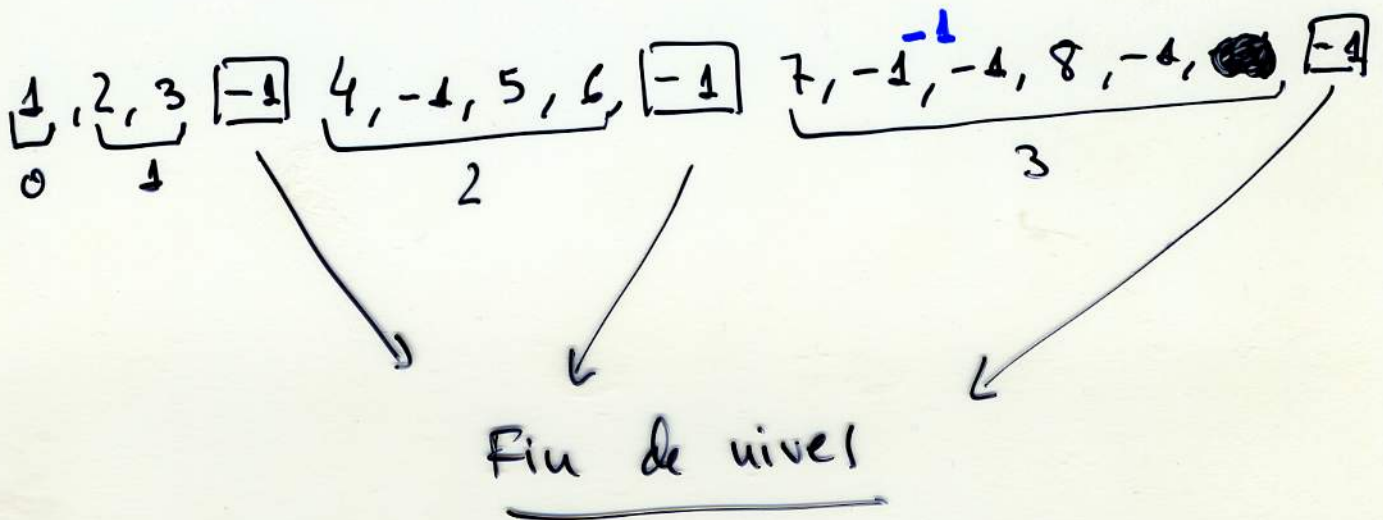 -1
1, 2, 3 -1 4, -1, 5, 6, -1 7, -1, -1, 8, -1, , -1
0 1 2 3
Fin de nivel